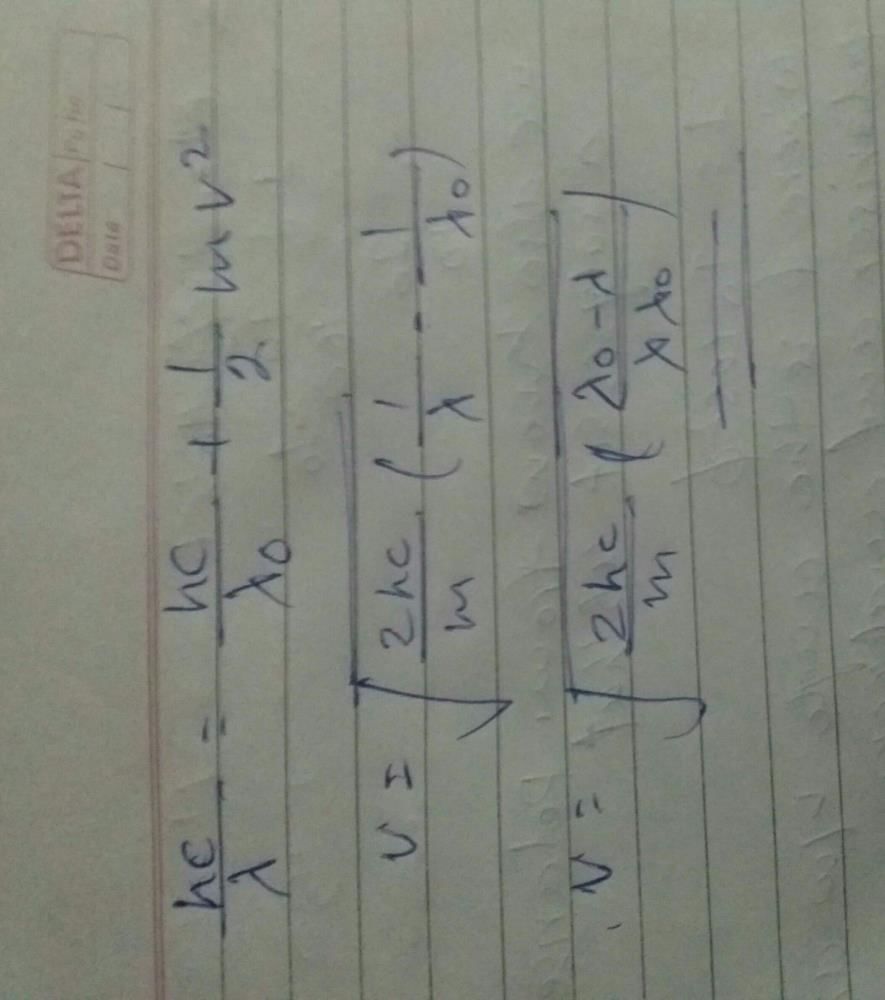 DELTA Pg No
Date / /
hc/λ = hc/λ0 + 1/2 mv²
v = √(2hc/m (1/λ - 1/λ0))
v = √(2hc/m (λ0-λ/λλ0))